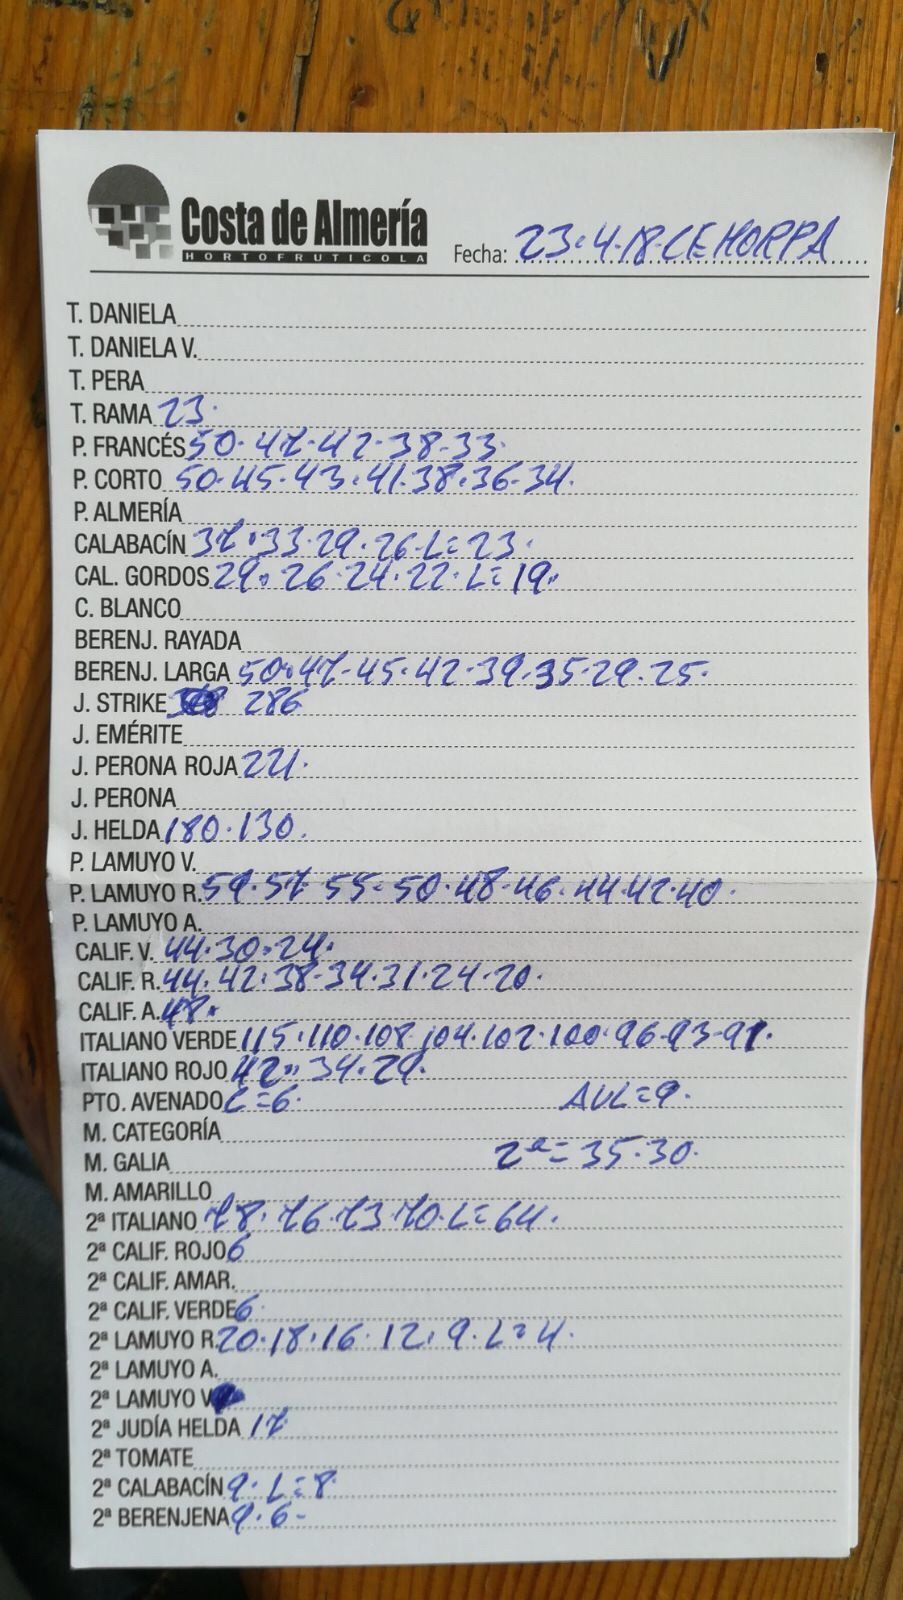 Costa de Almería
HORTOFRUTICOLA
Fecha: 23.4.18.CEHORPA
T. DANIELA
T. DANIELA V.
T. PERA
T. RAMA 23.
P. FRANCÉS 50.47.42.38.33.
P. CORTO 50.45.43.41.38.36.34.
P. ALMERÍA
CALABACÍN 37.33.29.26.L=23.
CAL. GORDOS 29.26.24.22.L=19.
C. BLANCO
BERENJ. RAYADA
BERENJ. LARGA 50.47.45.42.39.35.29.25.
J. STRIKE 286
J. EMÉRITE
J. PERONA ROJA 221.
J. PERONA
J. HELDA 180.130.
P. LAMUYO V.
P. LAMUYO R. 59.57.55.50.48.46.44.42.40.
P. LAMUYO A.
CALIF. V. 44.30.24.
CALIF. R. 44.42.38.34.31.24.20.
CALIF. A. 48.
ITALIANO VERDE 115.110.108.104.102.100.96.93.91.
ITALIANO ROJO 42.34.29.
PTO. AVENADO L=6. AVL=9.
M. CATEGORÍA
M. GALIA 2ª=35.30.
M. AMARILLO
2ª ITALIANO 78.76.73.70.L=64.
2ª CALIF. ROJO 6
2ª CALIF. AMAR.
2ª CALIF. VERDE 6.
2ª LAMUYO R. 20.18.16.12.9.L=4.
2ª LAMUYO A.
2ª LAMUYO V
2ª JUDÍA HELDA 17
2ª TOMATE
2ª CALABACÍN 9.L=8.
2ª BERENJENA 9.6-